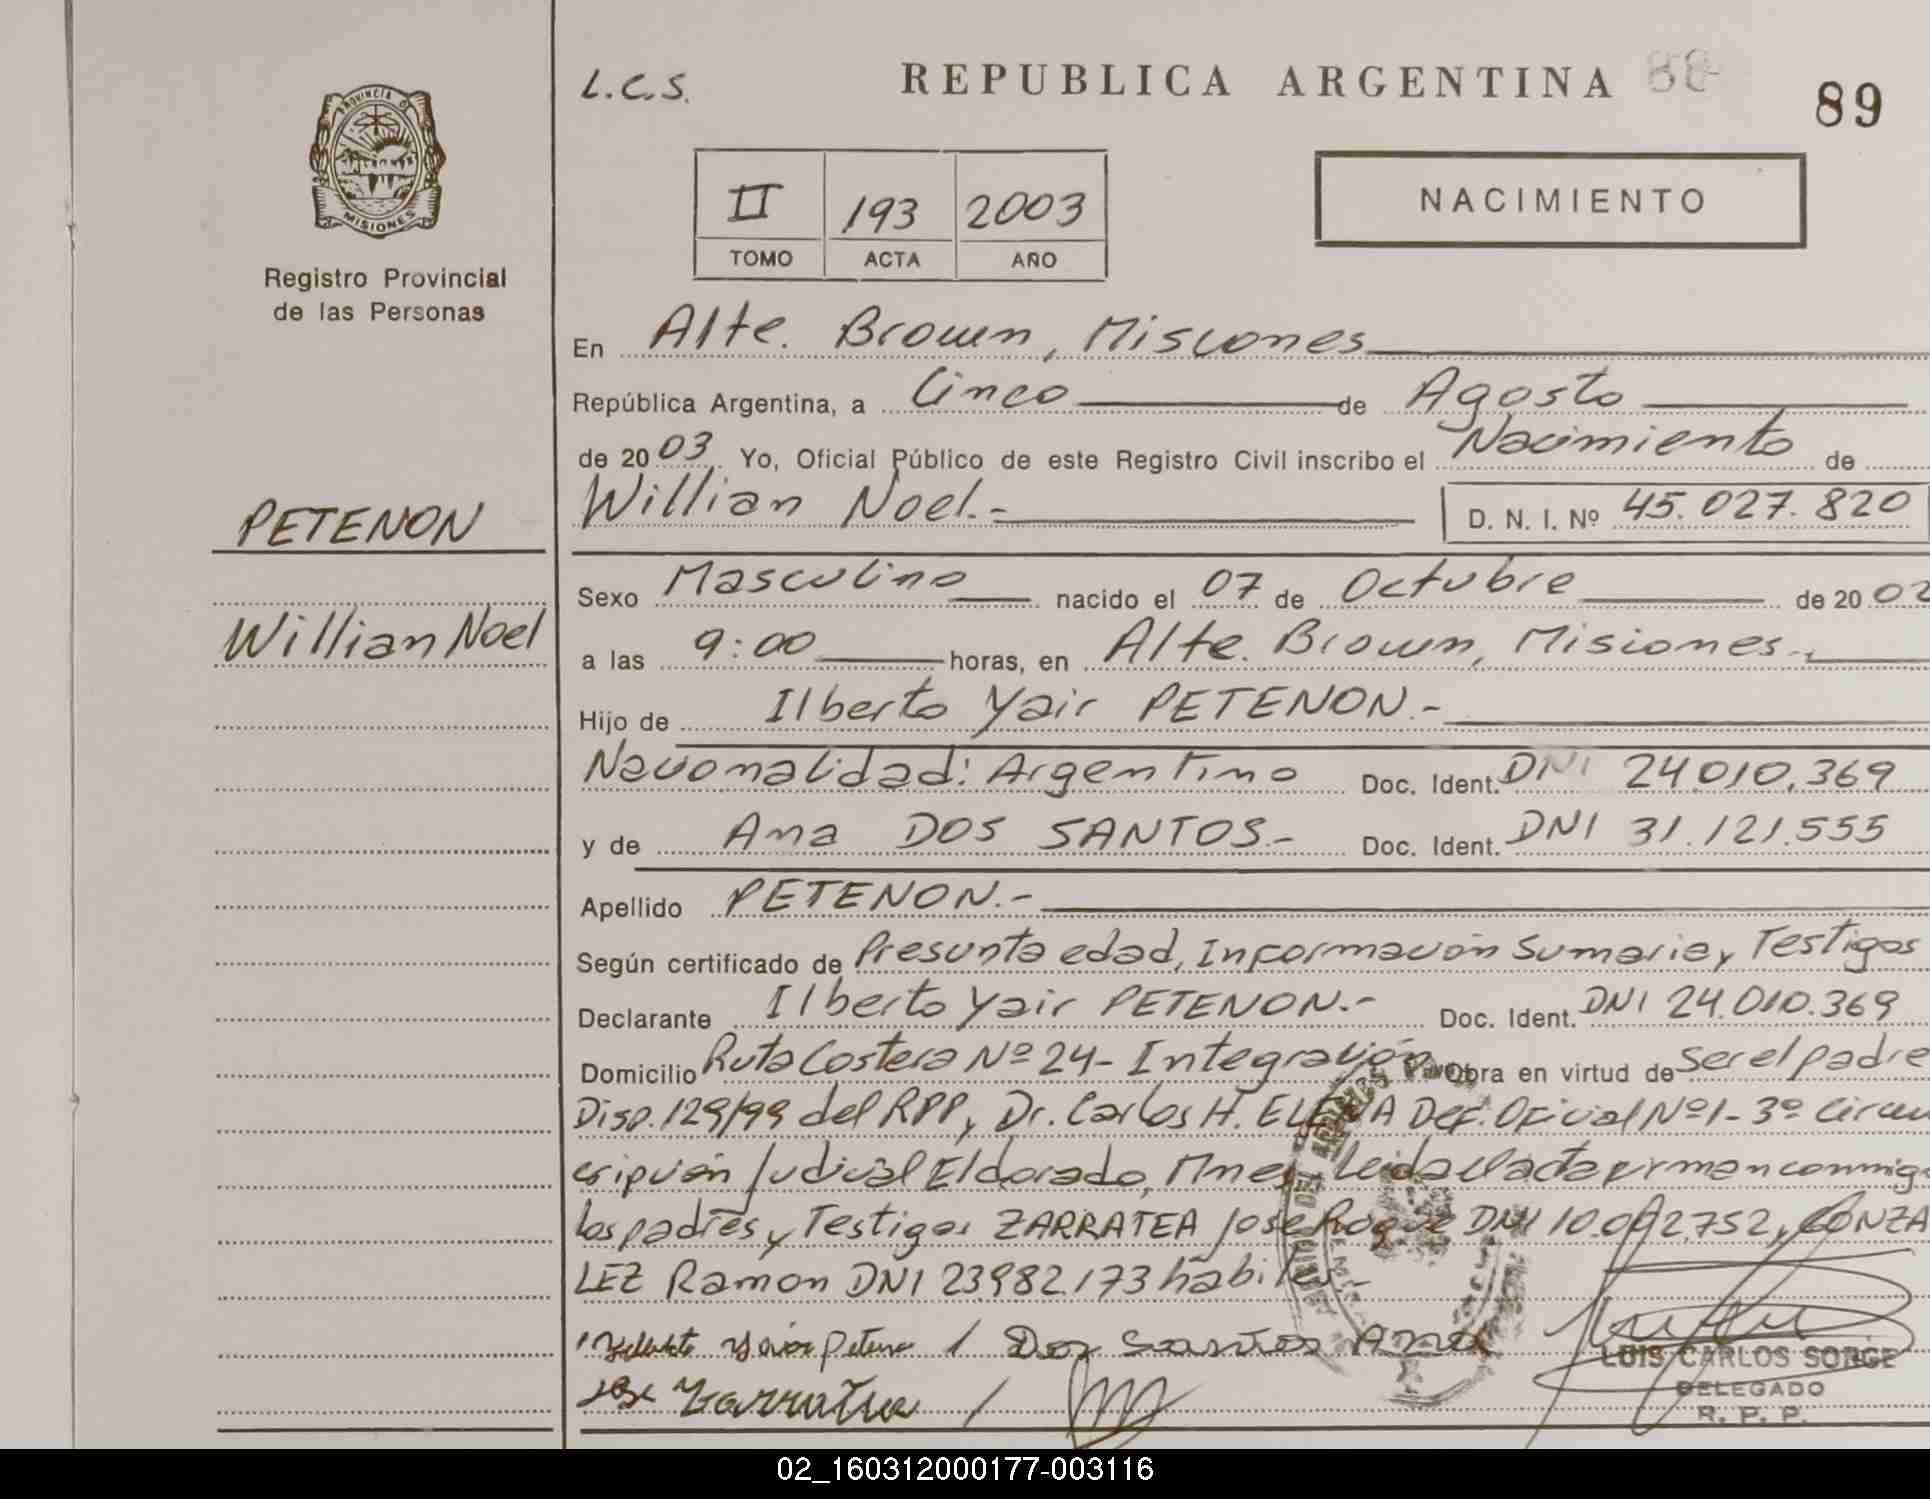 L.C.S.
REPUBLICA ARGENTINA
88
89
PROVINCIA DE
MISIONES
Registro Provincial
de las Personas
II 193 2003
TOMO ACTA AÑO
NACIMIENTO
En Alte. Brown, Misiones
República Argentina, a Cinco de Agosto
de 2003. Yo, Oficial Público de este Registro Civil inscribo el Nacimiento de
Willian Noel.-
D. N. I. Nº 45.027.820
PETENON
Willian Noel
Sexo Masculino nacido el 07 de Octubre de 2002
a las 9:00 horas, en Alte. Brown, Misiones.
Hijo de Ilberto Yair PETENON.-
Nacionalidad: Argentino Doc. Ident. DNI 24.010.369
y de Ana DOS SANTOS.- Doc. Ident. DNI 31.121.555
Apellido PETENON.-
Según certificado de Presunta edad, Información Sumaria y Testigos
Declarante Ilberto Yair PETENON.- Doc. Ident. DNI 24.010.369
Domicilio Ruta Costera Nº 24- Integración Obra en virtud de Ser el padre
Disp. 129/99 del RPP, Dr. Carlos H. Def. Oficial Nº1- 3º Circun
cripción Judicial Eldorado, Mnes, Leida el acta firman conmigo
los padres y Testigos ZARRATEA José Roque DNI 10.0 2.752, GONZA
LEZ Ramon DNI 23.982.173 habiles.-
Petenon / Dos Santos Ana
Zarratea /
LUIS CARLOS SORGE
DELEGADO
R. P. P.
02_160312000177-003116